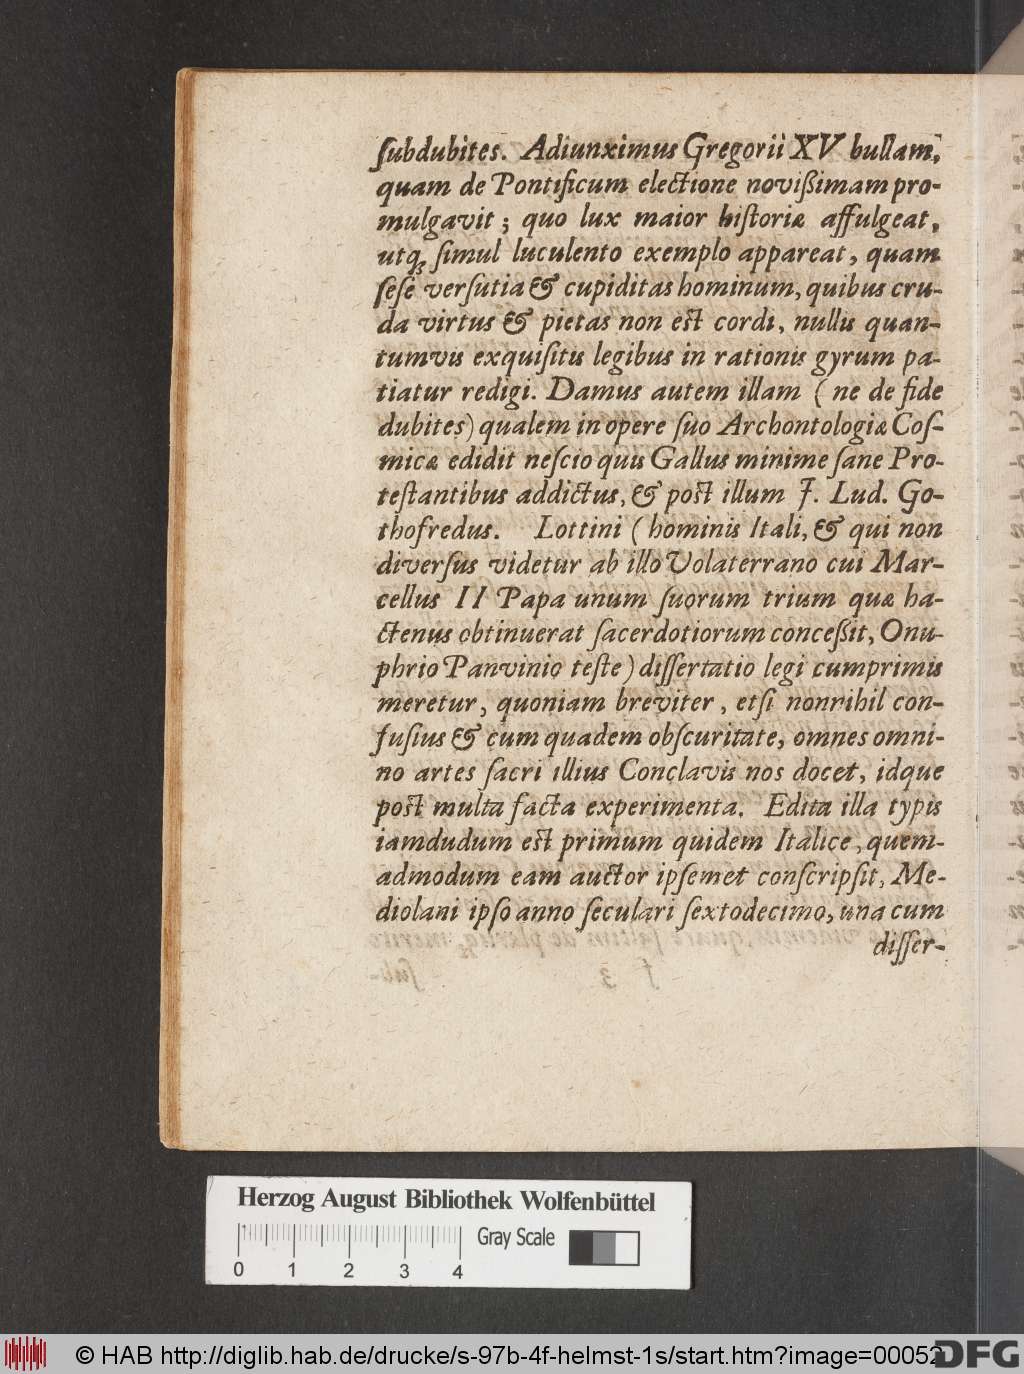 ſubdubites. Adiunximus Gregorii XV bullam,
quam de Pontificum electione novißimam pro-
mulgavit; quo lux maior hiſtoriæ affulgeat,
utq́ꝫ ſimul luculento exemplo appareat, quam
ſeſe verſutia & cupiditas hominum, quibus cru-
da virtus & pietas non eſt cordi, nullis quan-
tumvis exquiſitis legibus in rationis gyrum pa-
tiatur redigi. Damus autem illam (ne de fide
dubites) qualem in opere ſuo Archontologiæ Coſ-
micæ edidit neſcio quis Gallus minime ſane Pro-
teſtantibus addictus, & poſt illum J. Lud. Go-
thofredus. Lottini (hominis Itali, & qui non
diverſus videtur ab illo Volaterrano cui Mar-
cellus II Papa unum ſuorum trium quæ ha-
ctenus obtinuerat ſacerdotiorum conceßit, Onu-
phrio Panvinio teſte) diſſertatio legi cumprimis
meretur, quoniam breviter, etſi nonnihil con-
fuſius & cum quadem obſcuritate, omnes omni-
no artes ſacri illius Conclavis nos docet, idque
poſt multa facta experimenta. Edita illa typis
iamdudum eſt primum quidem Italice, quem-
admodum eam auctor ipſemet conſcripſit, Me-
diolani ipſo anno ſeculari ſextodecimo, una cum
diſſer-
Herzog August Bibliothek Wolfenbüttel
Gray Scale
0 1 2 3 4
© HAB http://diglib.hab.de/drucke/s-97b-4f-helmst-1s/start.htm?image=00052
DFG